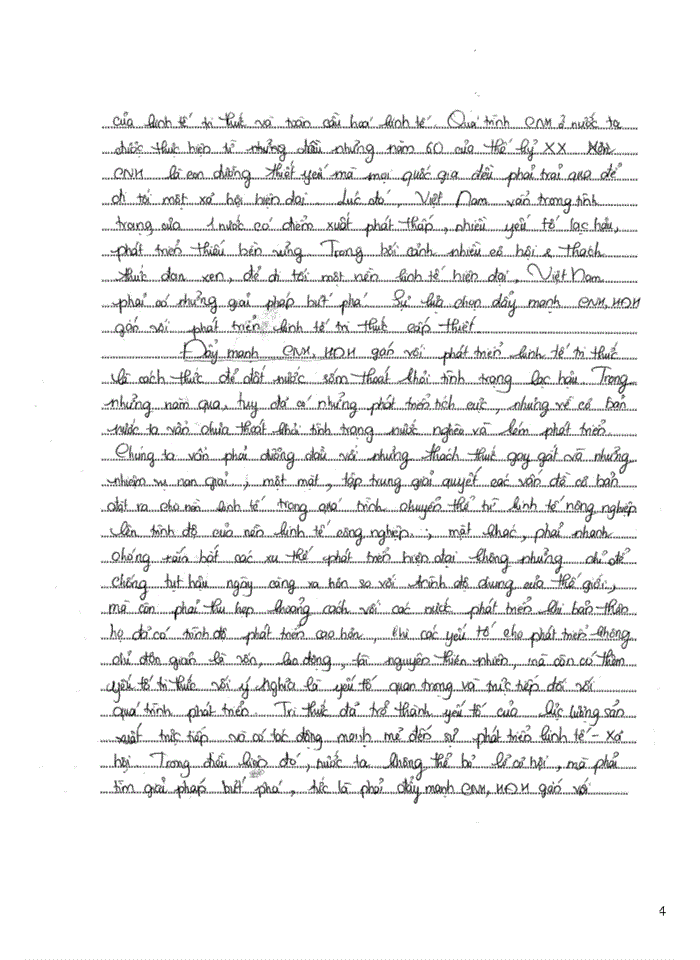 của kinh tế tri thức và toàn cầu hoá kinh tế. Quá trình CNH ở nước ta
được thực hiện từ những đầu những năm 60 của thế kỷ XX
CNH là con đường thiết yếu mà mọi quốc gia đều phải trải qua để
đi tới một xã hội hiện đại. Lúc đó, Việt Nam vẫn trong tình
trạng của 1 nước có điểm xuất phát thấp, nhiều yếu tố lạc hậu,
phát triển thiếu bền vững. Trong bối cảnh nhiều cơ hội & thách
thức đan xen, để đi tới một nền kinh tế hiện đại, Việt Nam
phải có những giải pháp bứt phá. Sự lựa chọn đẩy mạnh CNH, HĐH
gắn với phát triển kinh tế tri thức cấp thiết.
Đẩy mạnh CNH, HĐH gắn với phát triển kinh tế tri thức
là cách thức để đất nước sớm thoát khỏi tình trạng lạc hậu. Trong
những năm qua, tuy đã có những phát triển tích cực, nhưng về cơ bản
nước ta vẫn chưa thoát khỏi tình trạng nước nghèo và kém phát triển.
Chúng ta vẫn phải đương đầu với những thách thức gay gắt và những
nhiệm vụ nan giải; một mặt, tập trung giải quyết các vấn đề cơ bản
đặt ra cho nền kinh tế trong quá trình chuyển thể từ kinh tế nông nghiệp
lên trình độ của nền kinh tế công nghiệp.; mặt khác, phải nhanh
chóng nắm bắt các xu thế phát triển hiện đại không những chỉ để
chống tụt hậu ngày càng xa hơn so với trình độ chung của thế giới,
mà còn phải thu hẹp khoảng cách với các nước phát triển khi bản thân
họ đã có trình độ phát triển cao hơn, khi các yếu tố cho phát triển không
chỉ đơn giản là vốn, lao động, tài nguyên thiên nhiên, mà còn có thêm
yếu tố tri thức với ý nghĩa là yếu tố quan trọng và trực tiếp đối với
quá trình phát triển. Tri thức đã trở thành yếu tố của lực lượng sản
xuất trực tiếp và có tác động mạnh mẽ đến sự phát triển kinh tế - xã
hội. Trong điều kiện đó, nước ta không thể bỏ lỡ cơ hội, mà phải
tìm giải pháp bứt phá, tức là phải đẩy mạnh CNH, HĐH gắn với
4